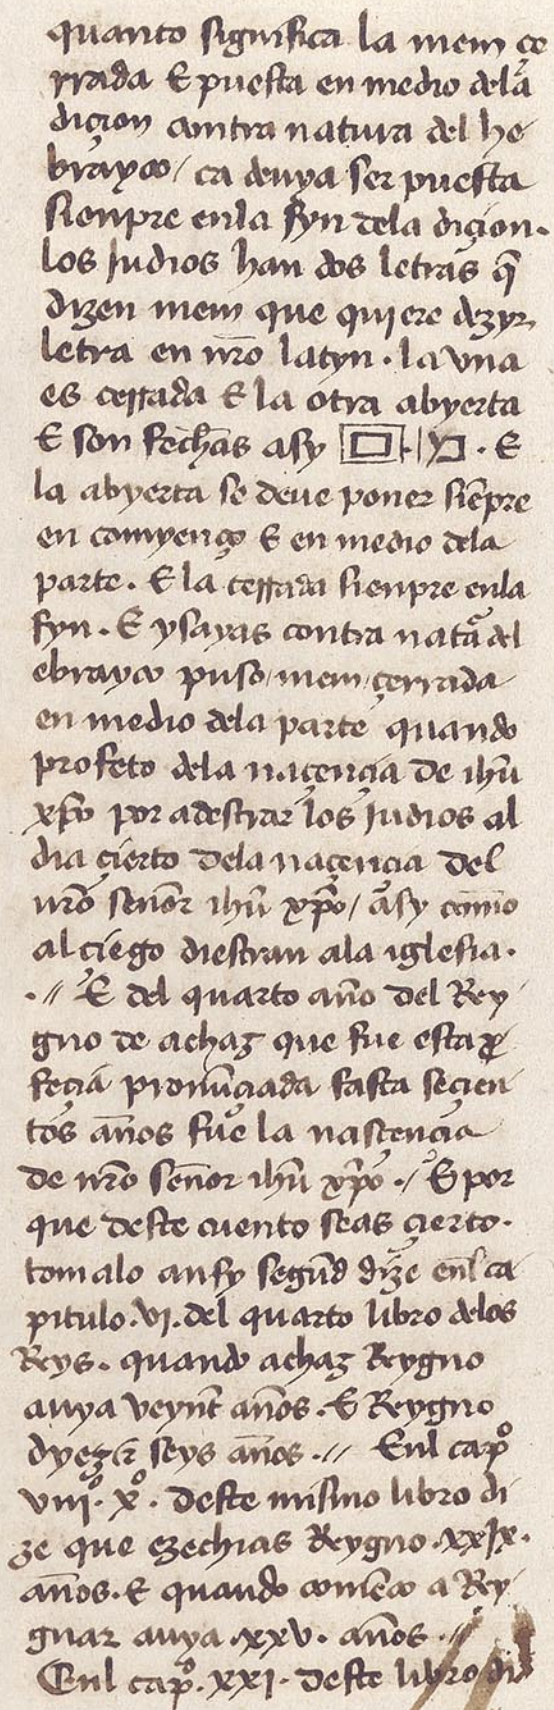 quanto significa la mem çe
rrada E puesta en medio dela
diçion contra natura del he
brayco / ca deuya ser puesta
sienpre enla fyn dela diçion.
los Judios han dos letras q̃
dizen mem que quiere dezyr
letra en nr̃o latyn . la vna
es cerrada E la otra abyerta
E son fechas asy ם . מ . E
la abyerta se deue poner siẽpre
en comyenço E en medio dela
parte . E la çerrada sienpre enla
fyn . E ysayas contra natã del
ebrayco puso / mem / çerrada
en medio dela parte quando
profeto dela naçençia de ihũ
xp̃o por adestrar los Judios al
dia çierto dela naçençia del
nr̃o señor ihũ xp̃o / asy como
al çiego diestran ala iglesia .
. // E del quarto año del Rey
gno de achaz que fue esta ꝓ
feçia pronũciada fasta seçien
tos años fue la nasçençia
de nr̃o señor ihũ xp̃o . // E por
que deste cuento seas çierto .
tomalo ansy segũd dize enl ca
pitulo . vi . del quarto libro delos
Reys . quando achaz Reygno
auya veynt años . E Reygno
dyez & seys años . // Enl capº
viiiº . xº . deste mismo libro di
ze que ezechias Reygno . xxix .
años . E quando comẽço a Rey
gnar auya . xxv . años . //
Enl capº . xxi . deste libro di